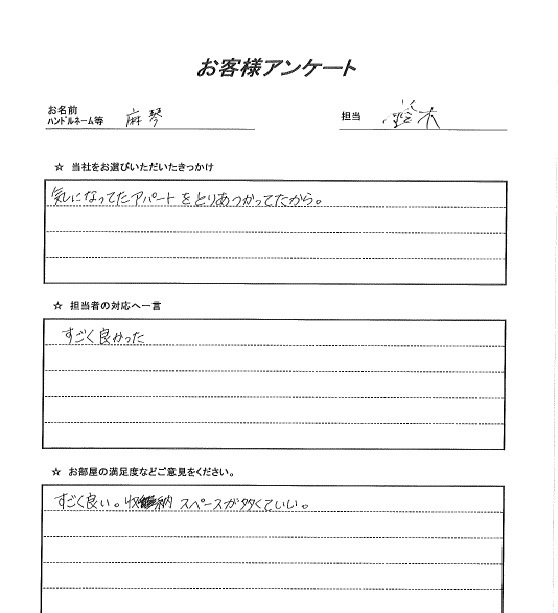 お客様アンケート
お名前
ハンドルネーム等 麻琴
担当 鈴木
☆ 当社をお選びいただいたきっかけ
気になってたアパートをとりあつかってたから。
☆ 担当者の対応へ一言
すごく良かった
☆ お部屋の満足度などご意見をください。
すごく良い。収納スペースが多くていい。